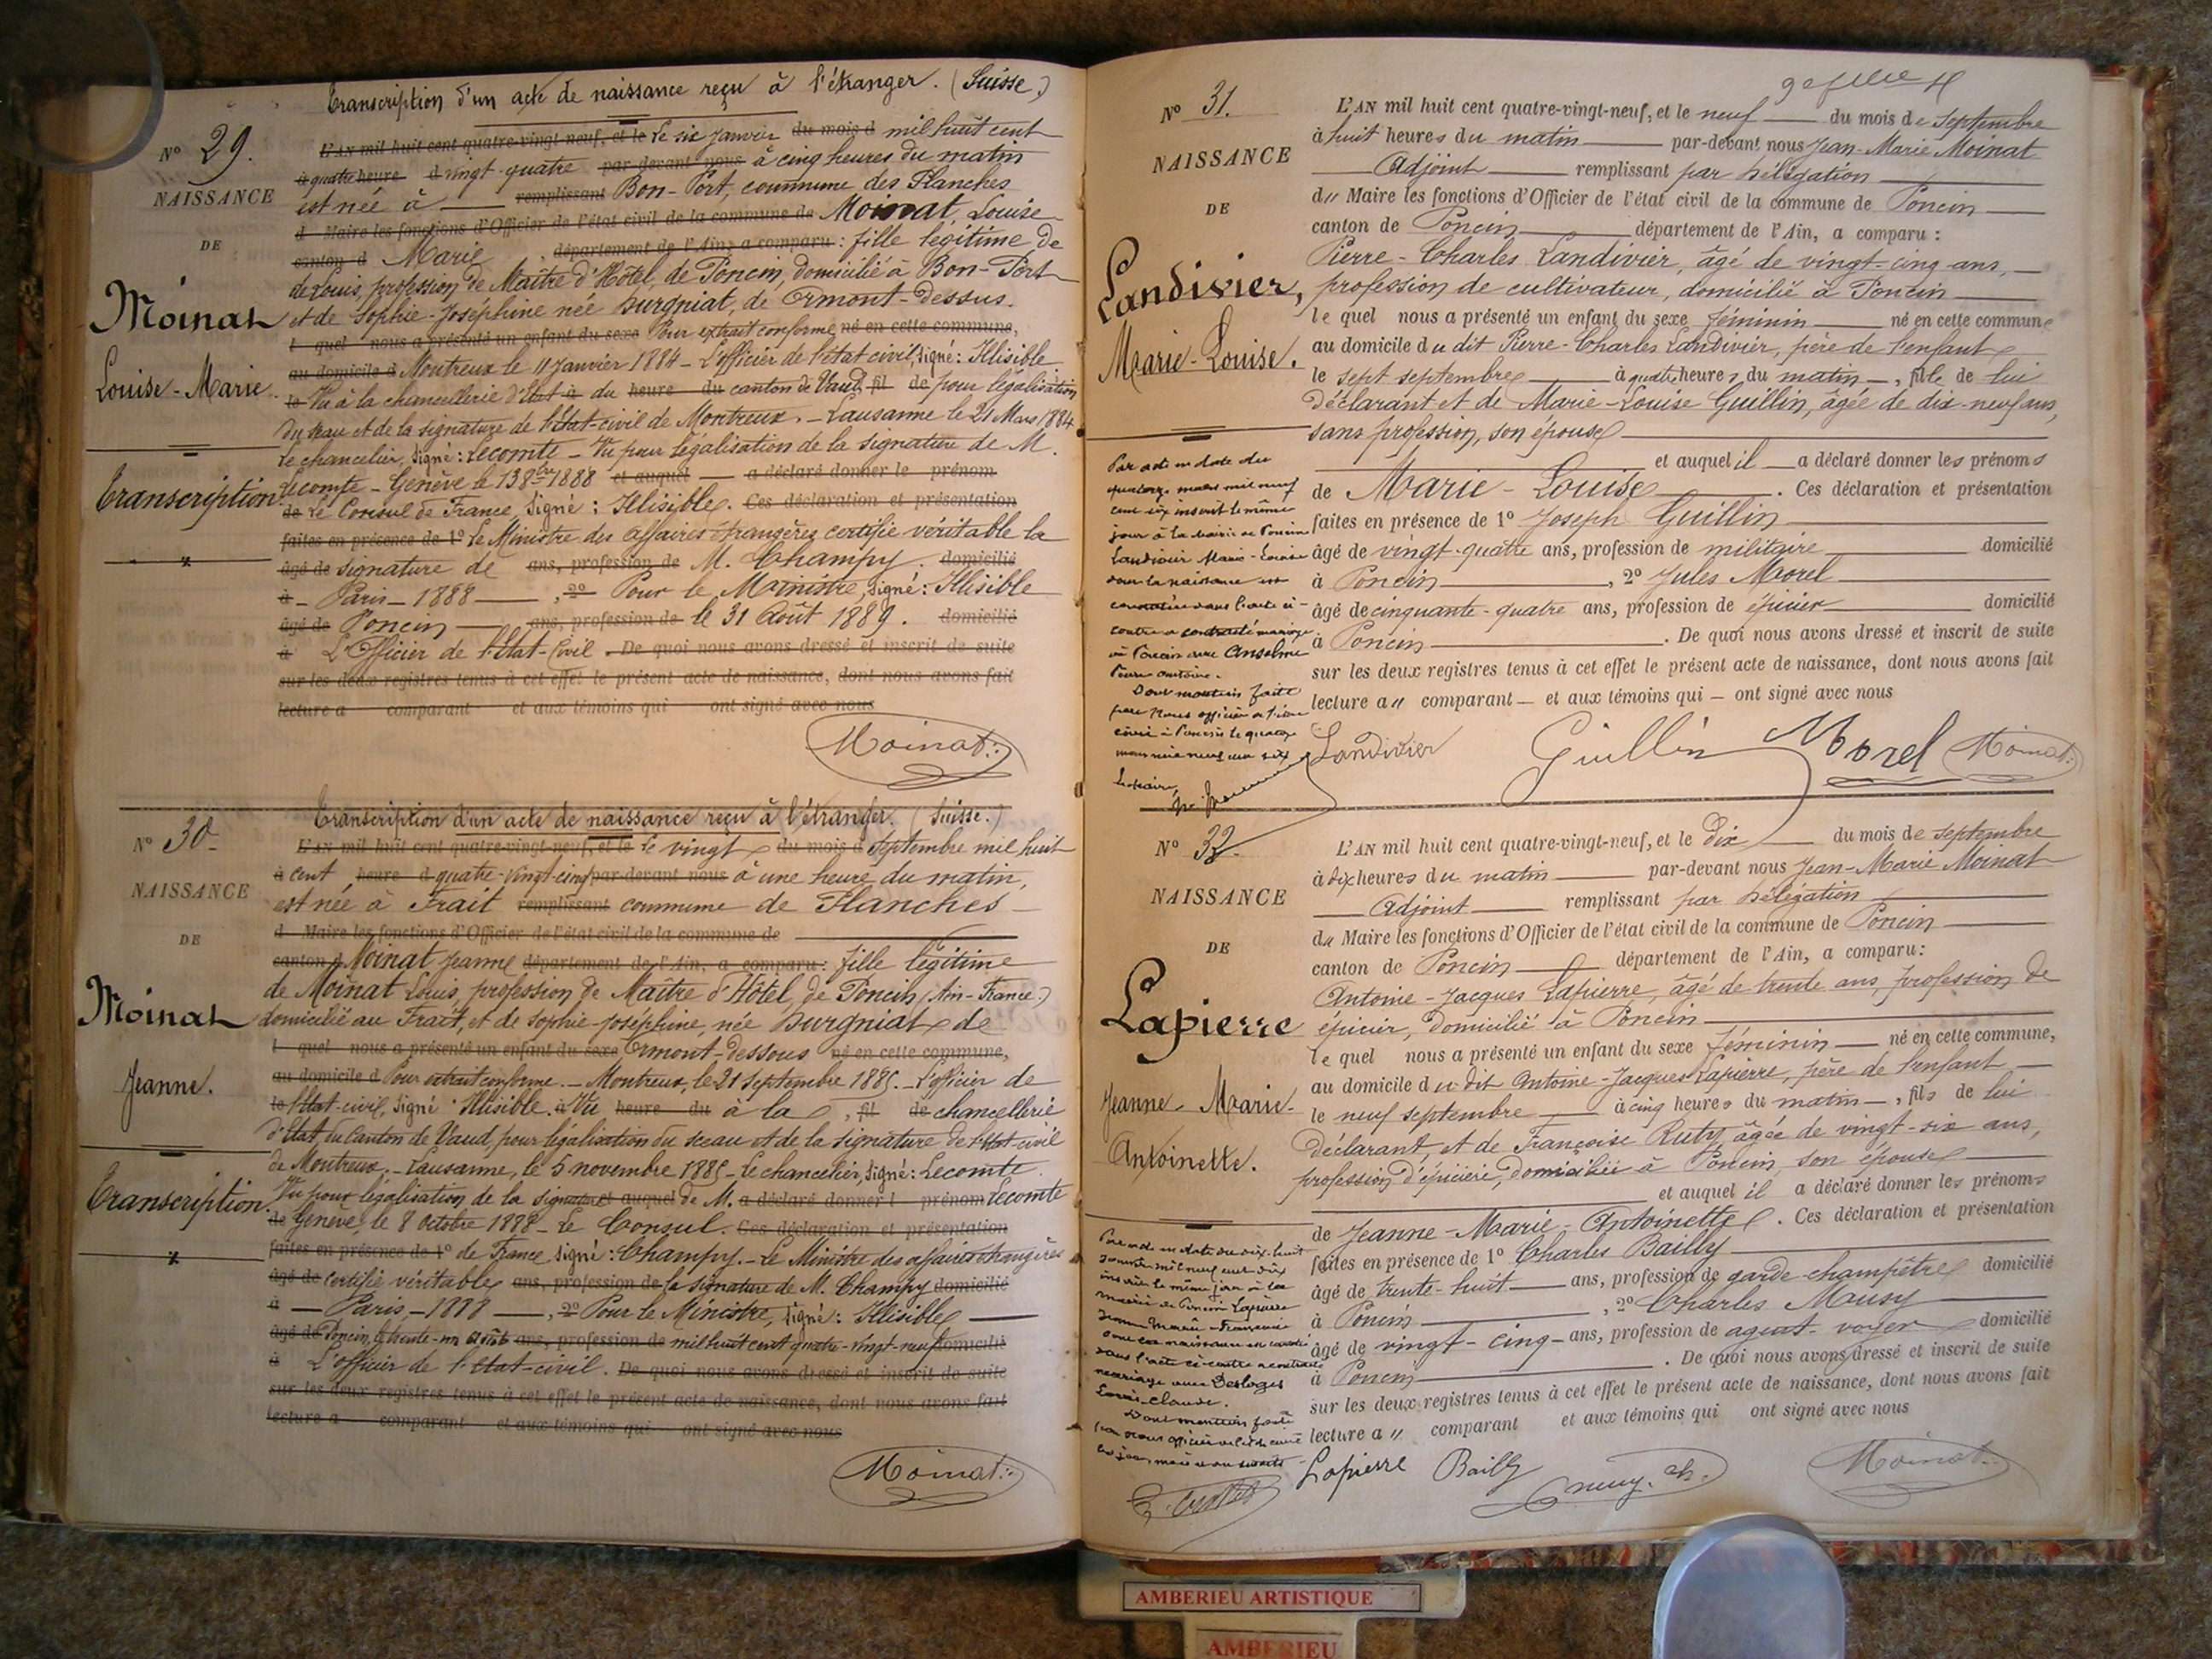 Transcription d'un acte de naissance reçu à l'étranger. (Suisse.)
N° 29.
NAISSANCE
DE
Moinat
Louise-Marie.
Transcription
L'AN mil huit cent quatre-vingt-neuf, et le Le six Janvier du mois d mil huit cent
à quatre heure d vingt-quatre par-devant nous à cinq heures du matin
est née à remplissant Bon-Port, commune des Planches
d Maire les fonctions d'Officier de l'état civil de la commune de Moinat, Louise
canton d Marie département de l'Ain, a comparu : fille légitime de
de Louis, profession de Maître d'Hôtel, de Poncin, domicilié à Bon-Port
et de Sophie-Joséphine née Burgniat, de Ormont-Dessus.
l quel nous a présenté un enfant du sexe Pour extrait conforme né en cette commune,
au domicile d Montreux le 11 Janvier 1884 - L'officier de l'état civil, signé : Illisible
le Vu à la chancellerie d'Etat à du heure du canton de Vaud, fil de pour légalisation
du sceau et de la signature de l'Etat-civil de Montreux. - Lausanne le 21 Mars 1884
Le chancelier, signé : Lecomte - Vu pour légalisation de la signature de M.
Lecomte - Genève le 13 8bre 1888 et auquel a déclaré donner le prénom
de Le Consul de France, signé : Illisible. Ces déclaration et présentation
faites en présence de 1° Le Ministre des affaires étrangères certifie véritable la
âgé de signature de ans, profession de M. Champy. domicilié
à - Paris - 1888 , 2° Pour le Ministre, signé : Illisible
âgé de Poncin ans, profession de le 31 Août 1889. domicilié
à L'Officier de l'Etat-Civil . De quoi nous avons dressé et inscrit de suite
sur les deux registres tenus à cet effet le présent acte de naissance, dont nous avons fait
lecture a comparant et aux témoins qui ont signé avec nous
Moinat
Transcription d'un acte de naissance reçu à l'étranger. (Suisse.)
N° 30
NAISSANCE
DE
Moinat
Jeanne.
Transcription.
L'AN mil huit cent quatre-vingt-neuf, et le le vingt du mois d septembre mil huit
à cent heure d quatre-vingt-cinq par-devant nous à une heure du matin,
est née à Trait remplissant commune de Planches
d Maire les fonctions d'Officier de l'état civil de la commune de
canton d Moinat Jeanne département de l'Ain, a comparu : fille légitime
de Moinat Louis, profession de Maître d'Hôtel, de Poncin (Ain-France.)
domicilié au Trait, et de Sophie-Joséphine, née Burgniat de
l quel nous a présenté un enfant du sexe Ormont-Dessous né en cette commune,
au domicile d Pour extrait conforme. - Montreux, le 21 septembre 1885. - L'officier de
le l'Etat-civil, signé Illisible. à Vu heure du à la , fil de chancellerie
d'Etat du Canton de Vaud, pour légalisation du sceau et de la signature de l'Etat-civil
de Montreux. - Lausanne, le 5 novembre 1885 - Le chancelier, signé : Lecomte.
Vu pour légalisation de la signature et auquel de M. a déclaré donner l prénom Lecomte
de Genève, le 8 octobre 1888 - Le Consul. Ces déclaration et présentation
faites en présence de 1° de France, signé : Champy. - Le Ministre des affaires étrangères
âgé de certifie véritable ans, profession de la signature de M. Champy domicilié
à - Paris, - 1888 , 2° Pour le Ministre, signé : Illisible
âgé de Poncin, le trente-un août ans, profession de mil huit cent quatre-vingt-neuf domicilié
à L'officier de l'Etat-civil. De quoi nous avons dressé et inscrit de suite
sur les deux registres tenus à cet effet le présent acte de naissance, dont nous avons fait
lecture a comparant et aux témoins qui ont signé avec nous
Moinat
N° 31.
NAISSANCE
DE
Landivier,
Marie-Louise.
L'AN mil huit cent quatre-vingt-neuf, et le neuf du mois de septembre
à huit heures du matin par-devant nous Jean-Marie Moinat
Adjoint remplissant par délégation
du Maire les fonctions d'Officier de l'état civil de la commune de Poncin
canton de Poncin département de l'Ain, a comparu :
Pierre-Charles Landivier, âgé de vingt-cinq ans,
profession de cultivateur, domicilié à Poncin
le quel nous a présenté un enfant du sexe féminin né en cette commune
au domicile du dit Pierre-Charles Landivier, père de l'enfant
le sept septembre à quatre heures du matin , fille de lui
déclarant et de Marie-Louise Guillin, âgée de dix-neuf ans,
sans profession, son épouse
et auquel il a déclaré donner les prénoms
de Marie-Louise . Ces déclaration et présentation
faites en présence de 1° Joseph Guillin
âgé de vingt-quatre ans, profession de militaire domicilié
à Poncin , 2° Jules Morel
âgé de cinquante-quatre ans, profession de épicier domicilié
à Poncin . De quoi nous avons dressé et inscrit de suite
sur les deux registres tenus à cet effet le présent acte de naissance, dont nous avons fait
lecture au comparant et aux témoins qui ont signé avec nous
Par acte en date du
quatorze mars mil neuf
cent six inscrit le même
jour à la mairie de Poncin
Landivier Marie-Louise
dont la naissance est
constatée dans l'acte ci-
contre a contracté mariage
à Poncin avec Anselme
Pierre Antoine.
Dont mention faite
par Nous officier de l'état
civil à Poncin le quatorze
mars mil neuf cent six
Le Maire,
Landivier Guillin Morel Moinat
N° 32.
NAISSANCE
DE
Lapierre
Jeanne-Marie-
Antoinette.
L'AN mil huit cent quatre-vingt-neuf, et le dix du mois de septembre
à dix heures du matin par-devant nous Jean-Marie Moinat
Adjoint remplissant par délégation
du Maire les fonctions d'Officier de l'état civil de la commune de Poncin
canton de Poncin département de l'Ain, a comparu :
Antoine-Jacques Lapierre, âgé de trente ans, profession de
épicier, domicilié à Poncin
le quel nous a présenté un enfant du sexe féminin né en cette commune,
au domicile du dit Antoine-Jacques Lapierre, père de l'enfant
le neuf septembre à cinq heures du matin , fils de lui
déclarant, et de Françoise Ruty, âgée de vingt-six ans,
profession d'épicière, domiciliée à Poncin, son épouse
et auquel il a déclaré donner les prénoms
de Jeanne-Marie-Antoinette . Ces déclaration et présentation
faites en présence de 1° Charles Bailly
âgé de trente-huit ans, profession de garde-champêtre domicilié
à Poncin , 2° Charles Mausy
âgé de vingt-cinq ans, profession de agent-voyer domicilié
à Poncin . De quoi nous avons dressé et inscrit de suite
sur les deux registres tenus à cet effet le présent acte de naissance, dont nous avons fait
lecture au comparant et aux témoins qui ont signé avec nous
Par acte en date du dix-huit
janvier mil neuf cent dix
inscrit le même jour à la
mairie de Poncin Lapierre
Jeanne Marie
dont la naissance est constatée
dans l'acte ci-contre a contracté
mariage avec Desloges
Louis-Claude.
Dont mention faite
par nous officier de l'état civil
Lapierre Bailly Moinat
AMBERIEU ARTISTIQUE
AMBERIEU